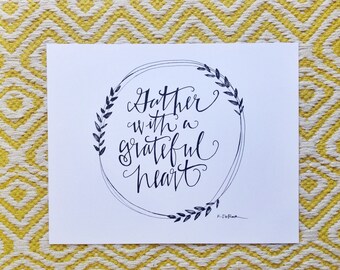 Gather
with a
grateful
heart